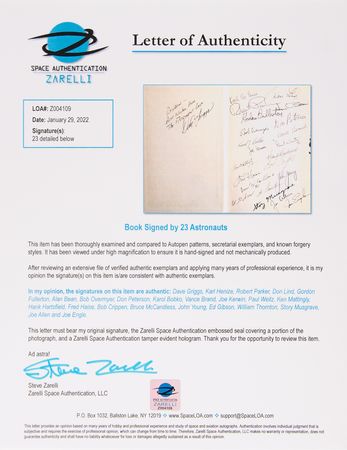 SPACE AUTHENTICATION
ZARELLI
Letter of Authenticity
LOA#: Z004109
Date: January 29, 2022
Signature(s):
23 detailed below
Book Signed by 23 Astronauts
This item has been thoroughly examined and compared to Autopen patterns, secretarial exemplars, and known forgery
styles. It has been viewed under high magnification to ensure it is hand-signed and not mechanically produced.
After reviewing an extensive file of verified authentic exemplars and applying many years of professional experience, it is my
opinion the signature(s) on this item is/are consistent with authentic exemplars.
In my opinion, the signatures on this item are authentic: Dave Griggs, Karl Henize, Robert Parker, Don Lind, Gordon
Fullerton, Alan Bean, Bob Overmyer, Don Peterson, Karol Bobko, Vance Brand, Joe Kerwin, Paul Weitz, Ken Mattingly,
Hank Hartsfield, Fred Haise, Bob Crippen, Bruce McCandless, John Young, Ed Gibson, William Thornton, Story Musgrave,
Joe Allen and Joe Engle.
This letter must bear my original signature, the Zarelli Space Authentication embossed seal covering a portion of the
photograph, and a Zarelli Space Authentication tamper evident hologram. Thank you for the opportunity to review this item.
Ad astra!
Steve Zarelli
Steve Zarelli
Zarelli Space Authentication, LLC
Z004109
P.O. Box 1032, Ballston Lake, NY 12019 ~ www.SpaceLOA.com ~ support@SpaceLOA.com
This letter provides an opinion based on many years of hobby and professional experience and study of space and aviation autographs. Authentication involves individual judgment that is
subjective and requires the exercise of professional opinion, which can change from time to time. Therefore, Zarelli Space Authentication, LLC makes no warranty or representation, does not
guarantee authenticity and shall have no liability whatsoever for loss or damages allegedly sustained as a result of this opinion.